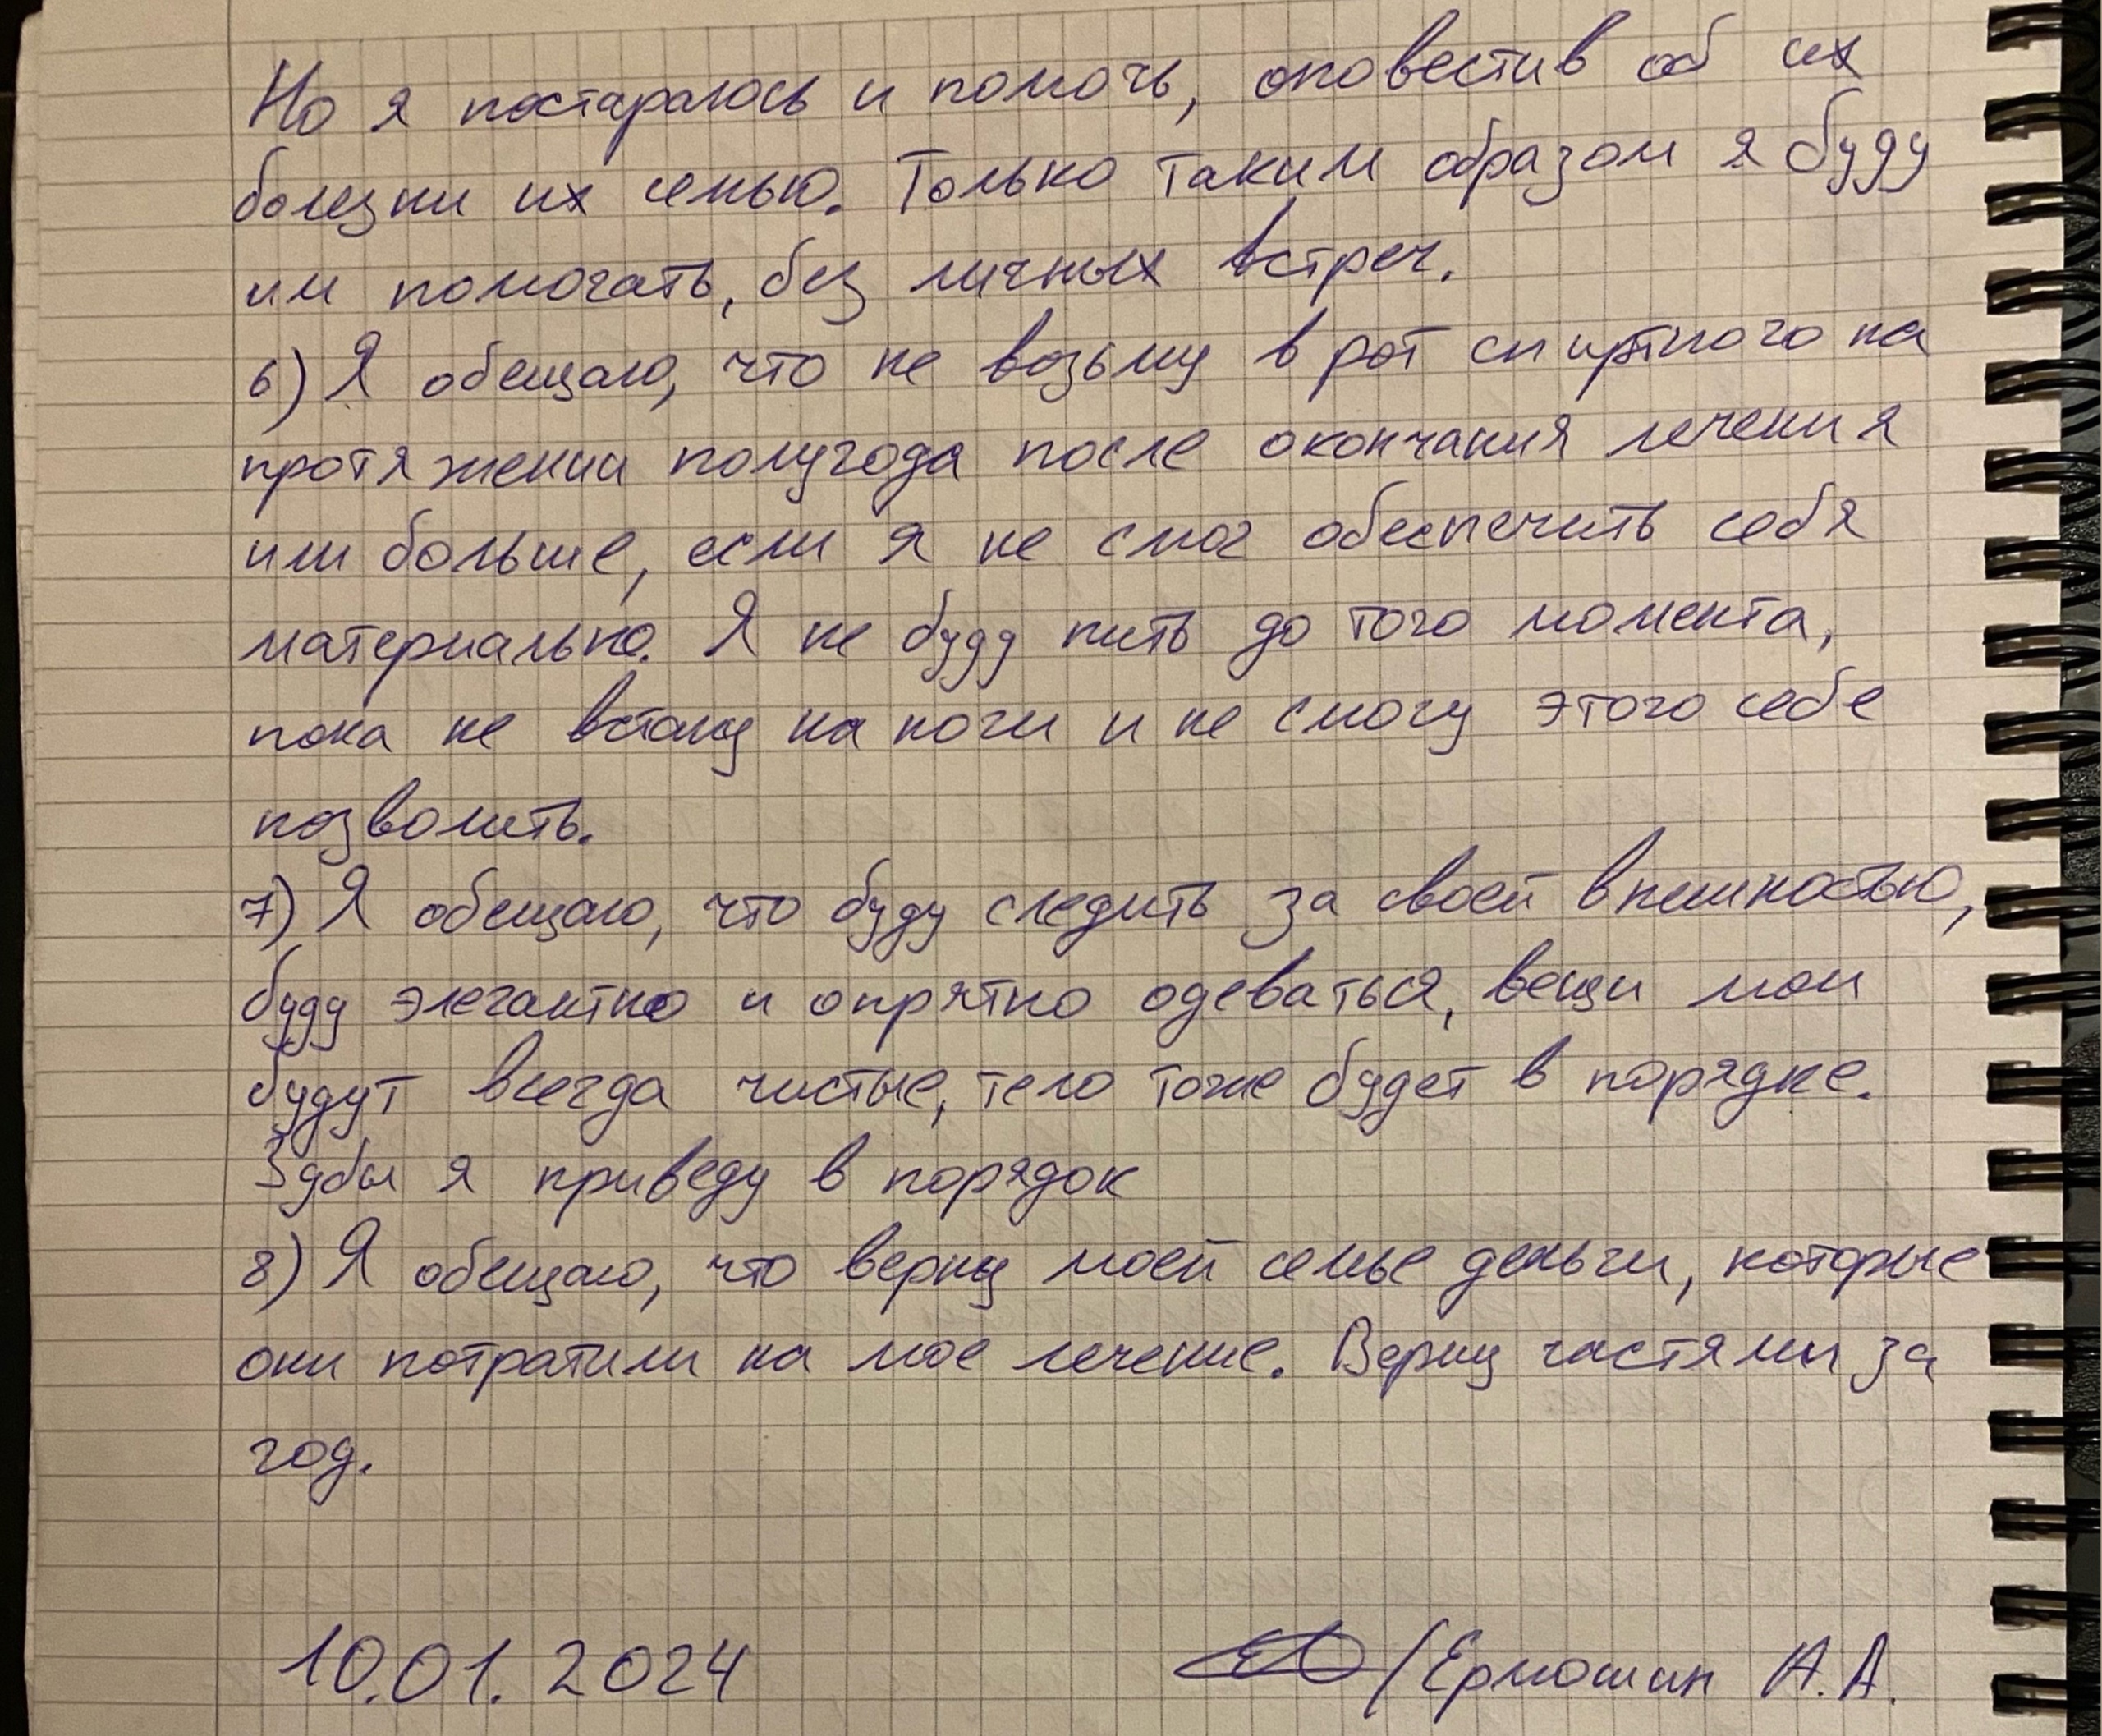 Но я постараюсь и помочь, оповестив об их
болезни их семью. Только таким образом я буду
им помогать, без личных встреч.
6) Я обещаю, что не возьму в рот спиртного на
протяжении полугода после окончания лечения
или больше, если я не смог обеспечить себя
материально. Я не буду пить до того момента,
пока не встану на ноги и не смогу этого себе
позволить.
7) Я обещаю, что буду следить за своей внешностью,
буду элегантно и опрятно одеваться, вещи мои
будут всегда чистые, тело тоже будет в порядке.
Зубы я приведу в порядок
8) Я обещаю, что верну моей семье деньги, которые
они потратили на мое лечение. Верну частями за
год.
10.01.2024 /Ермошин А.А.